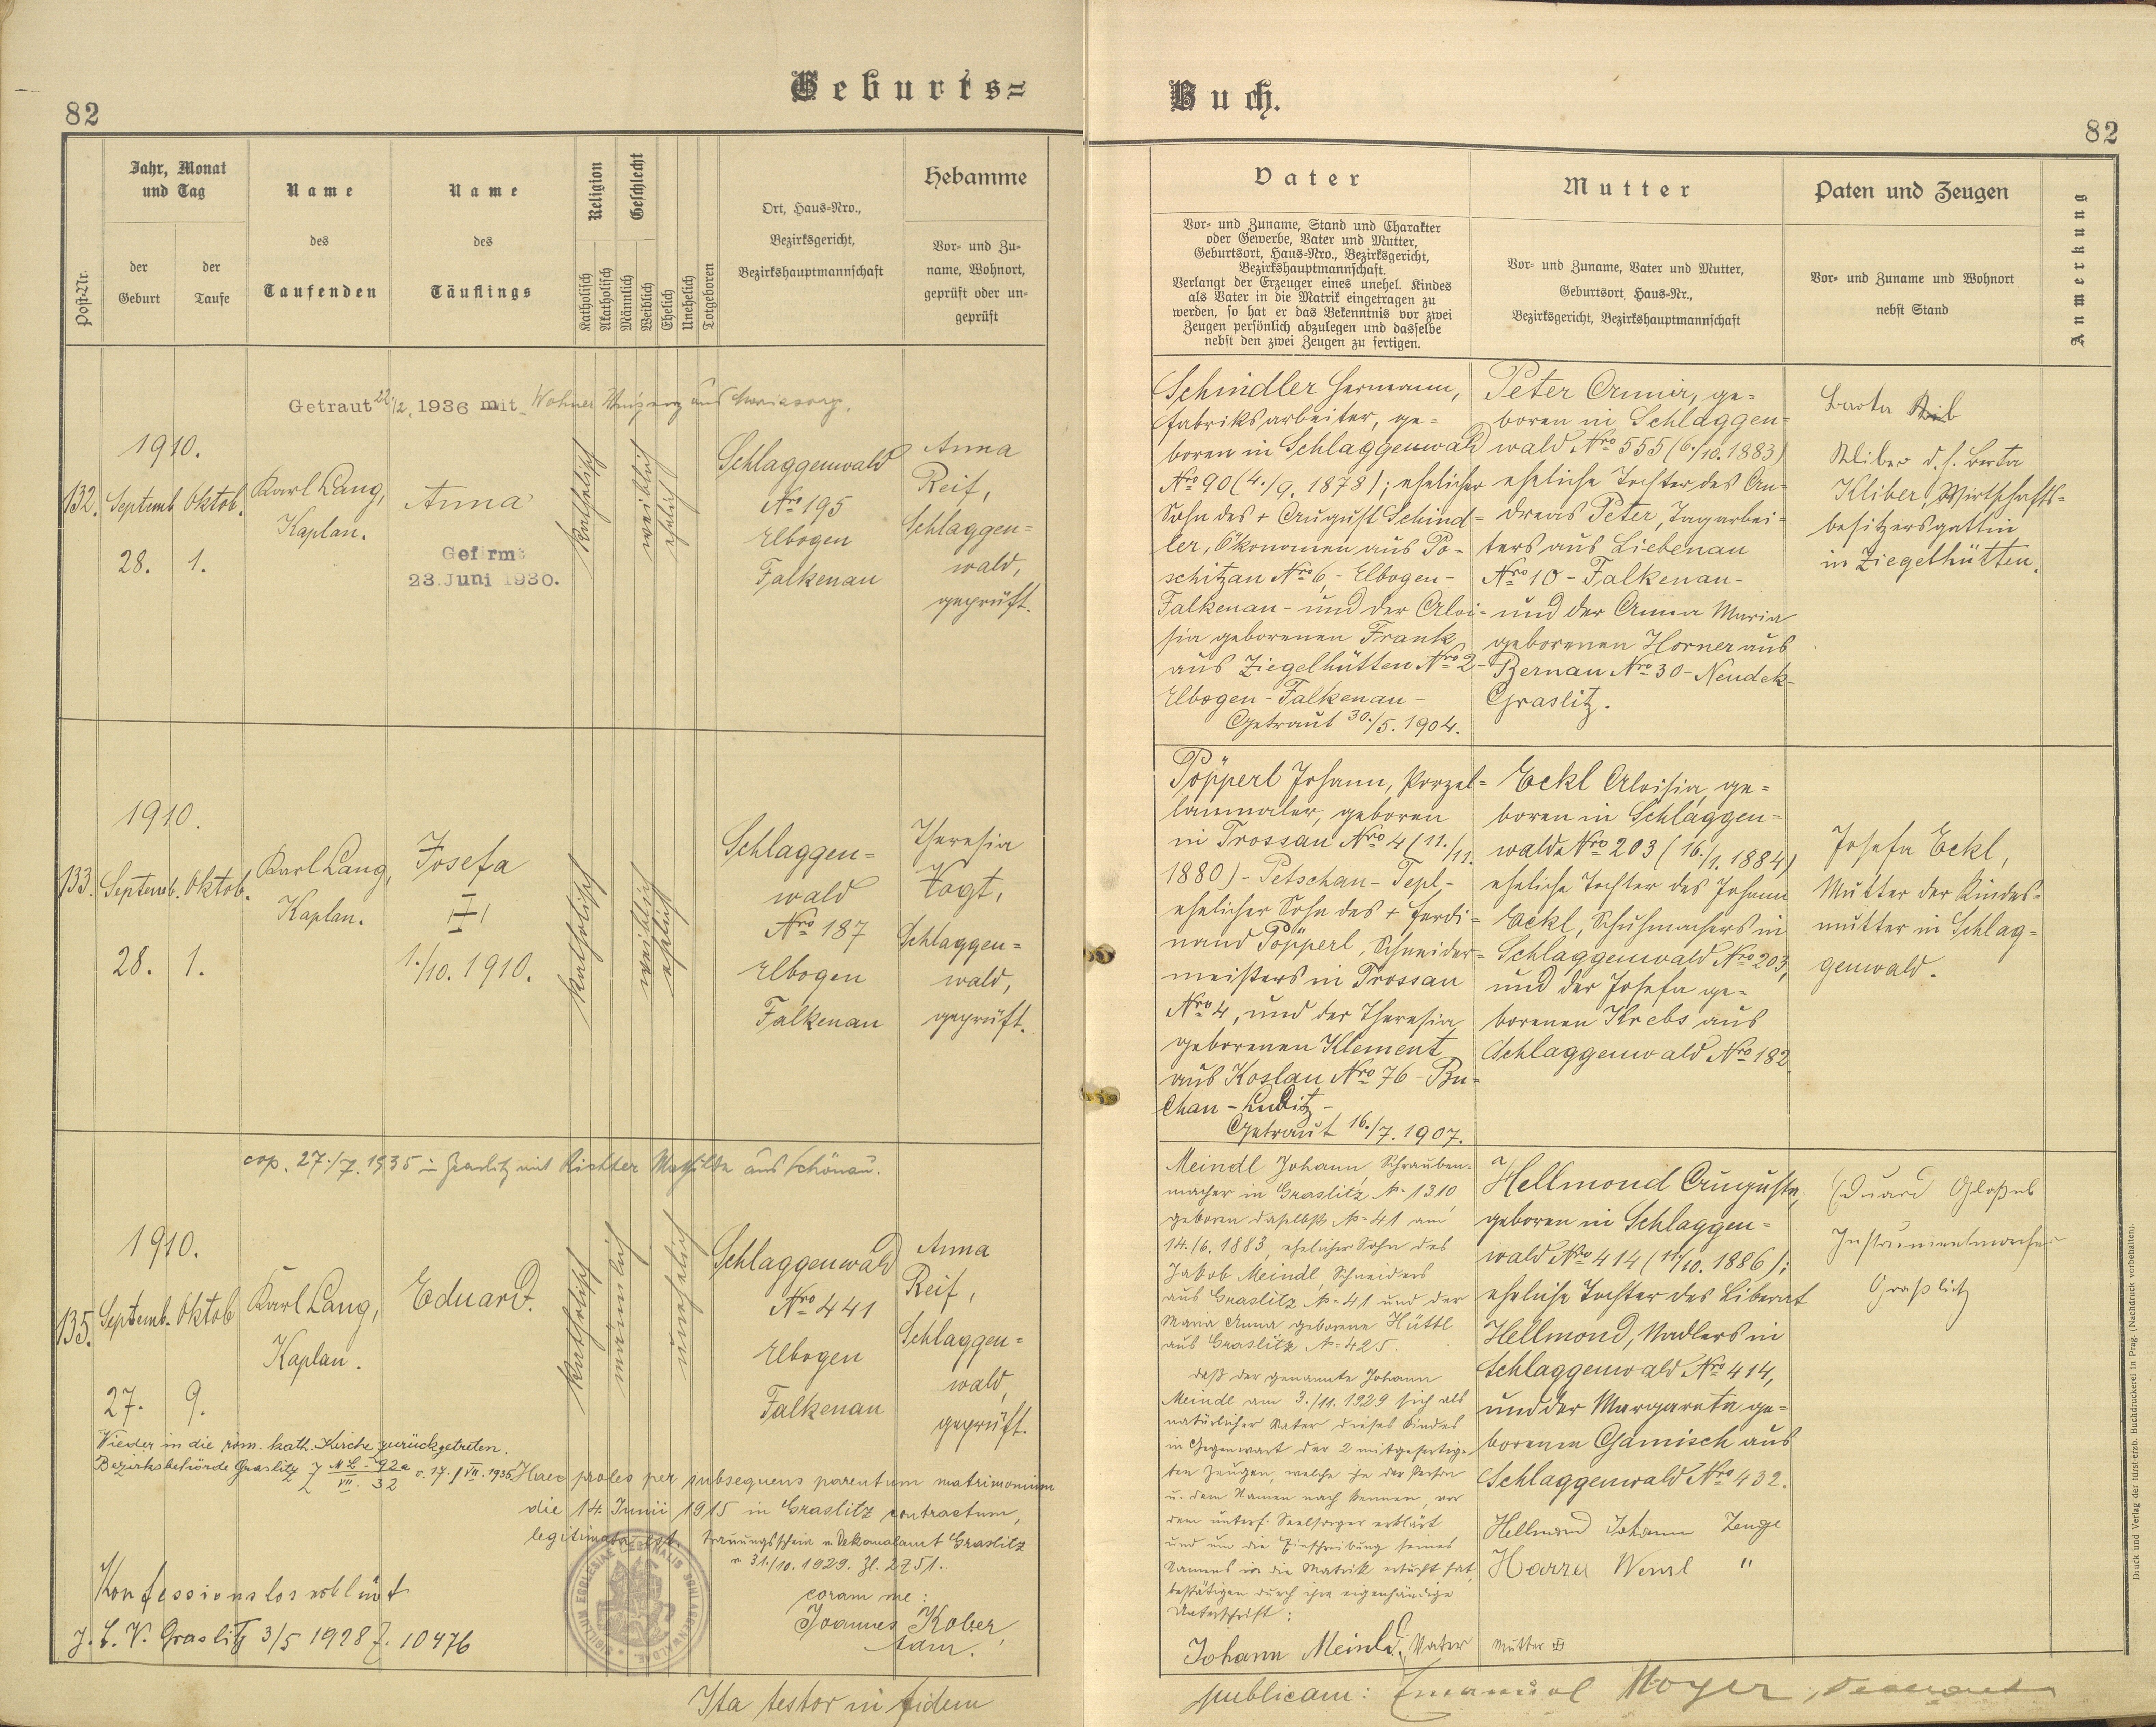 82
Geburts=
Jahr, Monat
und Tag
der
Geburt
der
Taufe
Post-Nr.
Name
des
Taufenden
Name
des
Täuflings
Religion
Katholisch
Akatholisch
Geschlecht
Männlich
Weiblich
Ehelich
Unehelich
Totgeboren
Ort, Haus-Nro.,
Bezirksgericht,
Bezirkshauptmannschaft
Hebamme
Vor- und Zu-
name, Wohnort,
geprüft oder un-
geprüft
Getraut 22./2. 1936 mit Wohner aus Mariasorg.
1910.
132. Septemb. Oktob.
28. 1.
Karl Lang,
Kaplan.
Anna
Gefirmt
23. Juni 1930.
katholisch
weiblich
ehelich
Schlaggenwald
Nro 195
Elbogen
Falkenau
Anna
Reif,
Schlaggen=
wald,
geprüft.
1910.
133. Septemb. Oktob.
28. 1.
Karl Lang,
Kaplan.
Josefa
1./10. 1910.
katholisch
weiblich
ehelich
Schlaggen=
wald
Nro 187
Elbogen
Falkenau
Theresia
Vogt,
Schlaggen=
wald,
geprüft.
cop. 27./7. 1935 in Graslitz mit Richter Mathilde aus Schönau.
1910.
135. Septemb. Oktob
27. 9.
Karl Lang,
Kaplan.
Eduard.
katholisch
männlich
unehelich
Schlaggenwald
Nro 441
Elbogen
Falkenau
Anna
Reif,
Schlaggen=
wald,
geprüft.
Wieder in die röm. kath. Kirche zurückgetreten.
Bezirksbehörde Graslitz v. 17./VII. 1935
Haec proles per subsequens parentum matrimonium
die 14. Junii 1915 in Graslitz contractum,
legitimata est. Trauungsschein v. Dekanalamt Graslitz
v. 31./10. 1929. Zl. 2751.
coram me:
Joannes Kober,
Konfessionslos erklärt
Graslitz 3/5 1928 Z. 10476
Ita testor in fidem
Buch.
82
Vater
Vor- und Zuname, Stand und Charakter
oder Gewerbe, Vater und Mutter,
Geburtsort, Haus-Nro., Bezirksgericht,
Bezirkshauptmannschaft.
Verlangt der Erzeuger eines unehel. Kindes
als Vater in die Matrik eingetragen zu
werden, so hat er das Bekenntnis vor zwei
Zeugen persönlich abzulegen und dasselbe
nebst den zwei Zeugen zu fertigen.
Mutter
Vor- und Zuname, Vater und Mutter,
Geburtsort, Haus-Nr.,
Bezirksgericht, Bezirkshauptmannschaft
Paten und Zeugen
Vor- und Zuname und Wohnort
nebst Stand
Anmerkung
Schindler Hermann,
Fabriksarbeiter, ge=
boren in Schlaggenwald
Nro 90 (4./9. 1878); ehelicher
Sohn des + August Schind=
ler, Ökonomen aus Po=
schitzau Nro 6, - Elbogen-
Falkenau - und der Aloi=
sia geborenen Frank
aus Ziegelhütten Nro 2-
Elbogen-Falkenau-
Getraut 30./5. 1904.
Peter Anna, ge=
boren in Schlaggen=
wald Nro 555 (6./10. 1883)
eheliche Tochter des An=
dreas Peter, Tagarbei=
ters aus Liebenau
Nro 10 - Falkenau-
und der Anna Maria
geborenen Horner aus
Bernau Nro 30 - Neudek-
Graslitz.
Berta
Kliber d. h. Berta
Kliber, Wirtschafts=
besitzersgattin
in Ziegelhütten.
Pöpperl Johann, Porzel=
lanmaler, geboren
in Trossau Nro 4 (11./11.
1880) - Petschau - Tepl-
ehelicher Sohn des + Ferdi=
nand Pöpperl, Schneider=
meisters in Trossau
Nro 4, und der Theresia
geborenen Klement
aus Koslau Nro 76 - Bu=
chau - Luditz -
Getraut 16./7. 1907.
Eckl Aloisia, ge=
boren in Schlaggen=
wald Nro 203 (16./1. 1884)
eheliche Tochter des Johann
Eckl, Schuhmachers in
Schlaggenwald Nro 203,
und der Josefa ge=
borenen Krebs aus
Schlaggenwald Nro 182
Josefa Eckl,
Mutter der Kindes=
mutter in Schlag=
genwald.
Meindl Johann, Schrauben-
macher in Graslitz N- 1310
geboren daselbst N= 41 am
14./6. 1883, ehelicher Sohn des
Jakob Meindl, Schneiders
aus Graslitz N= 41 und der
Maria Anna geborene Hüttl
aus Graslitz N= 425.
daß der genannte Johann
Meindl am 3./11. 1929 sich als
natürlicher Vater dieses Kindes
in Gegenwart der 2 mitgefertig-
ten Zeugen, welche ihn der Person
u. dem Namen nach kennen, vor
dem unterf. Seelsorger erklärt
und um die Einschreibung seines
Namens in die Matrik ersucht hat,
bestätigen durch ihre eigenhändige
Unterschrift:
Johann Meindl, Vater
Hellmond Auguste,
geboren in Schlaggen=
wald Nro 414 (11/10. 1886);
eheliche Tochter des Liberat
Hellmond, Nadlers in
Schlaggenwald Nro 414,
und der Margareta ge=
borenen Gamisch aus
Schlaggenwald Nro 432.
Hellmond Johann Zeuge
Harzer Wenzl "
Mutter
Eduard
Instrumentmacher
Graßlitz
publicam: Emanuel Moyer, Dechant
Druck und Verlag der fürst-erzb. Buchdruckerei in Prag. (Nachdruck vorbehalten).